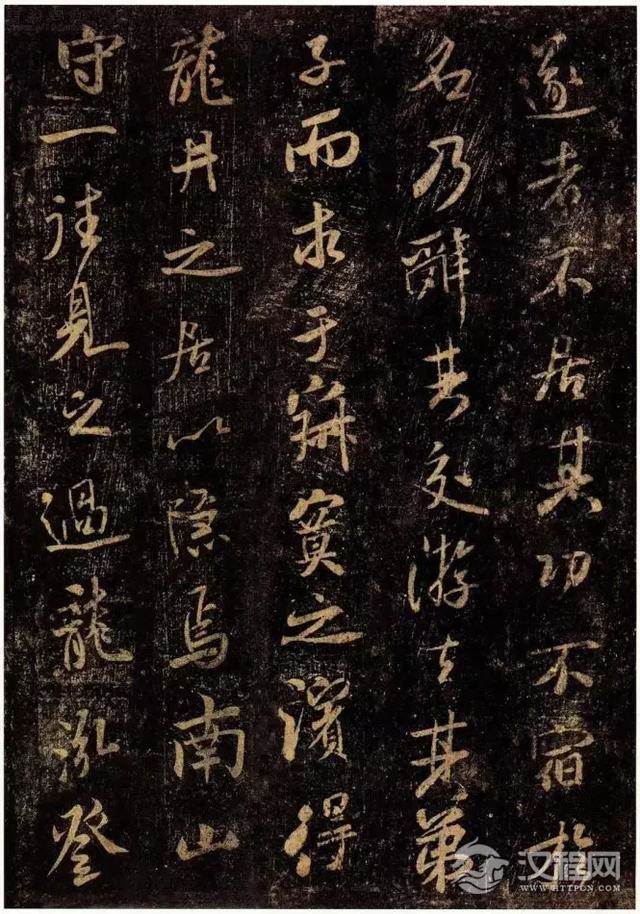 遂者不居其功不宿於
名乃辭其交游去其弟
子而求于寂寞之濱得
龍井之居以隱焉南山
守一往見之過龍泓登
汉程网
WWW.HTTPCN.COM